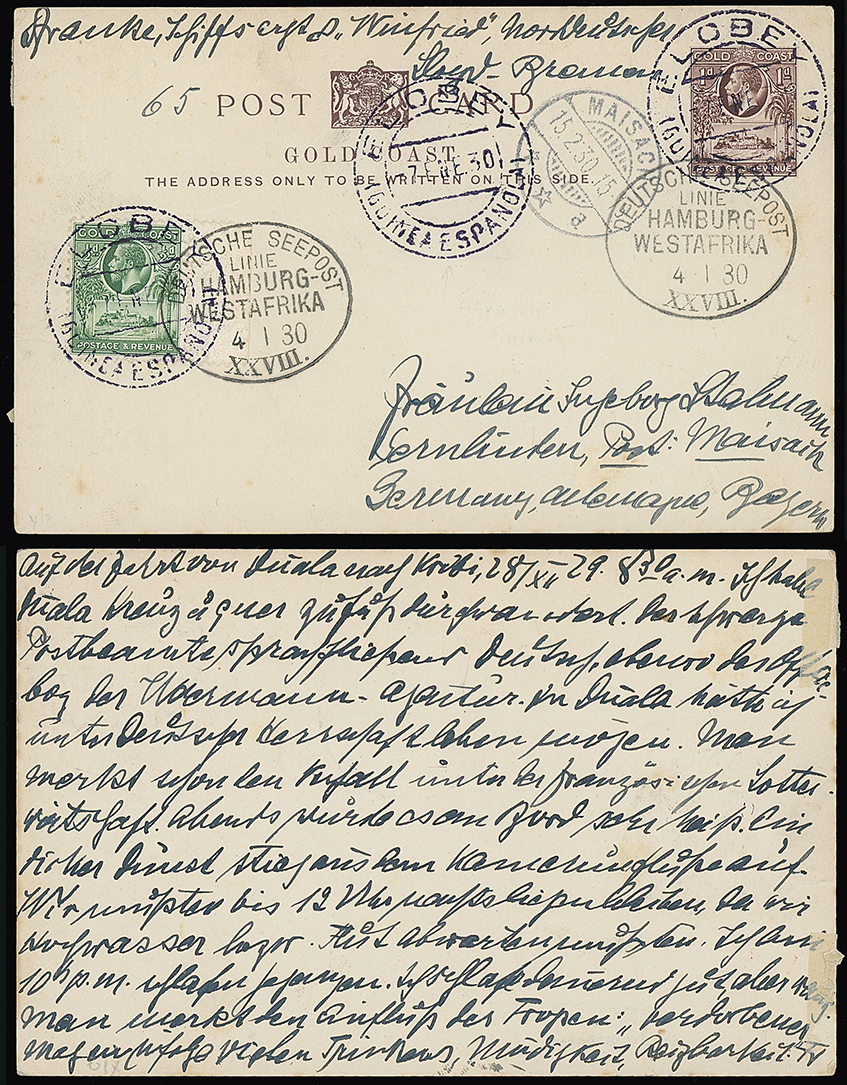 Franke, Schiffsarzt D. „Winfried", Norddeutscher
Lloyd - Bremen
65 POST CARD
GOLD COAST
THE ADDRESS ONLY TO BE WRITTEN ON THIS SIDE.
GOLD COAST
1D 1D
POSTAGE & REVENUE
ELOBEY
(GUINEA ESPAÑOLA)
ELOBEY
7 ENE 30
(GUINEA ESPAÑOLA)
MAISACH
15.2.30.
a
DEUTSCHE SEEPOST
LINIE
HAMBURG-
WESTAFRIKA
4 I 30
XXVIII.
GOLD COAST
POSTAGE & REVENUE
ELOBEY
(GUINEA ESPAÑOLA)
DEUTSCHE SEEPOST
LINIE
HAMBURG-
WESTAFRIKA
4 I 30
XXVIII.
Fräulein Ingeborg Stalmann
Gernlinden, Post: Maisach
Germany, Allemagne, Bayern
Auf der Fahrt von Duala nach Kribi, 28/XII 29. 8 30 a.m. Ich habe
Duala kreuz & quer zu Fuß durchwandert. Der schwarze
Postbeamte sprach fließend Deutsch, ebenso der
der Woermann-Agentur. In Duala hätte ich
unter Deutscher Herrschaft leben mögen. Man
merkt schon den Verfall unter der französischen Lotter-
wirtschaft. Abends wurde es an Bord sehr heiß. Ein
dicker Dunst stieg aus dem Kamerunflusse auf.
Wir mußten bis 12 Uhr nachts liegen bleiben, da wir
Hochwasser bezw. Flut abwarten mußten. Ich bin
10 h p.m. schlafen gegangen. Ich schlafe dauernd gut aber wenig.
Man merkt den Einfluß der Tropen: „verdorbener
Magen infolge vielen Trinkens, Müdigkeit, Reizbarkeit."